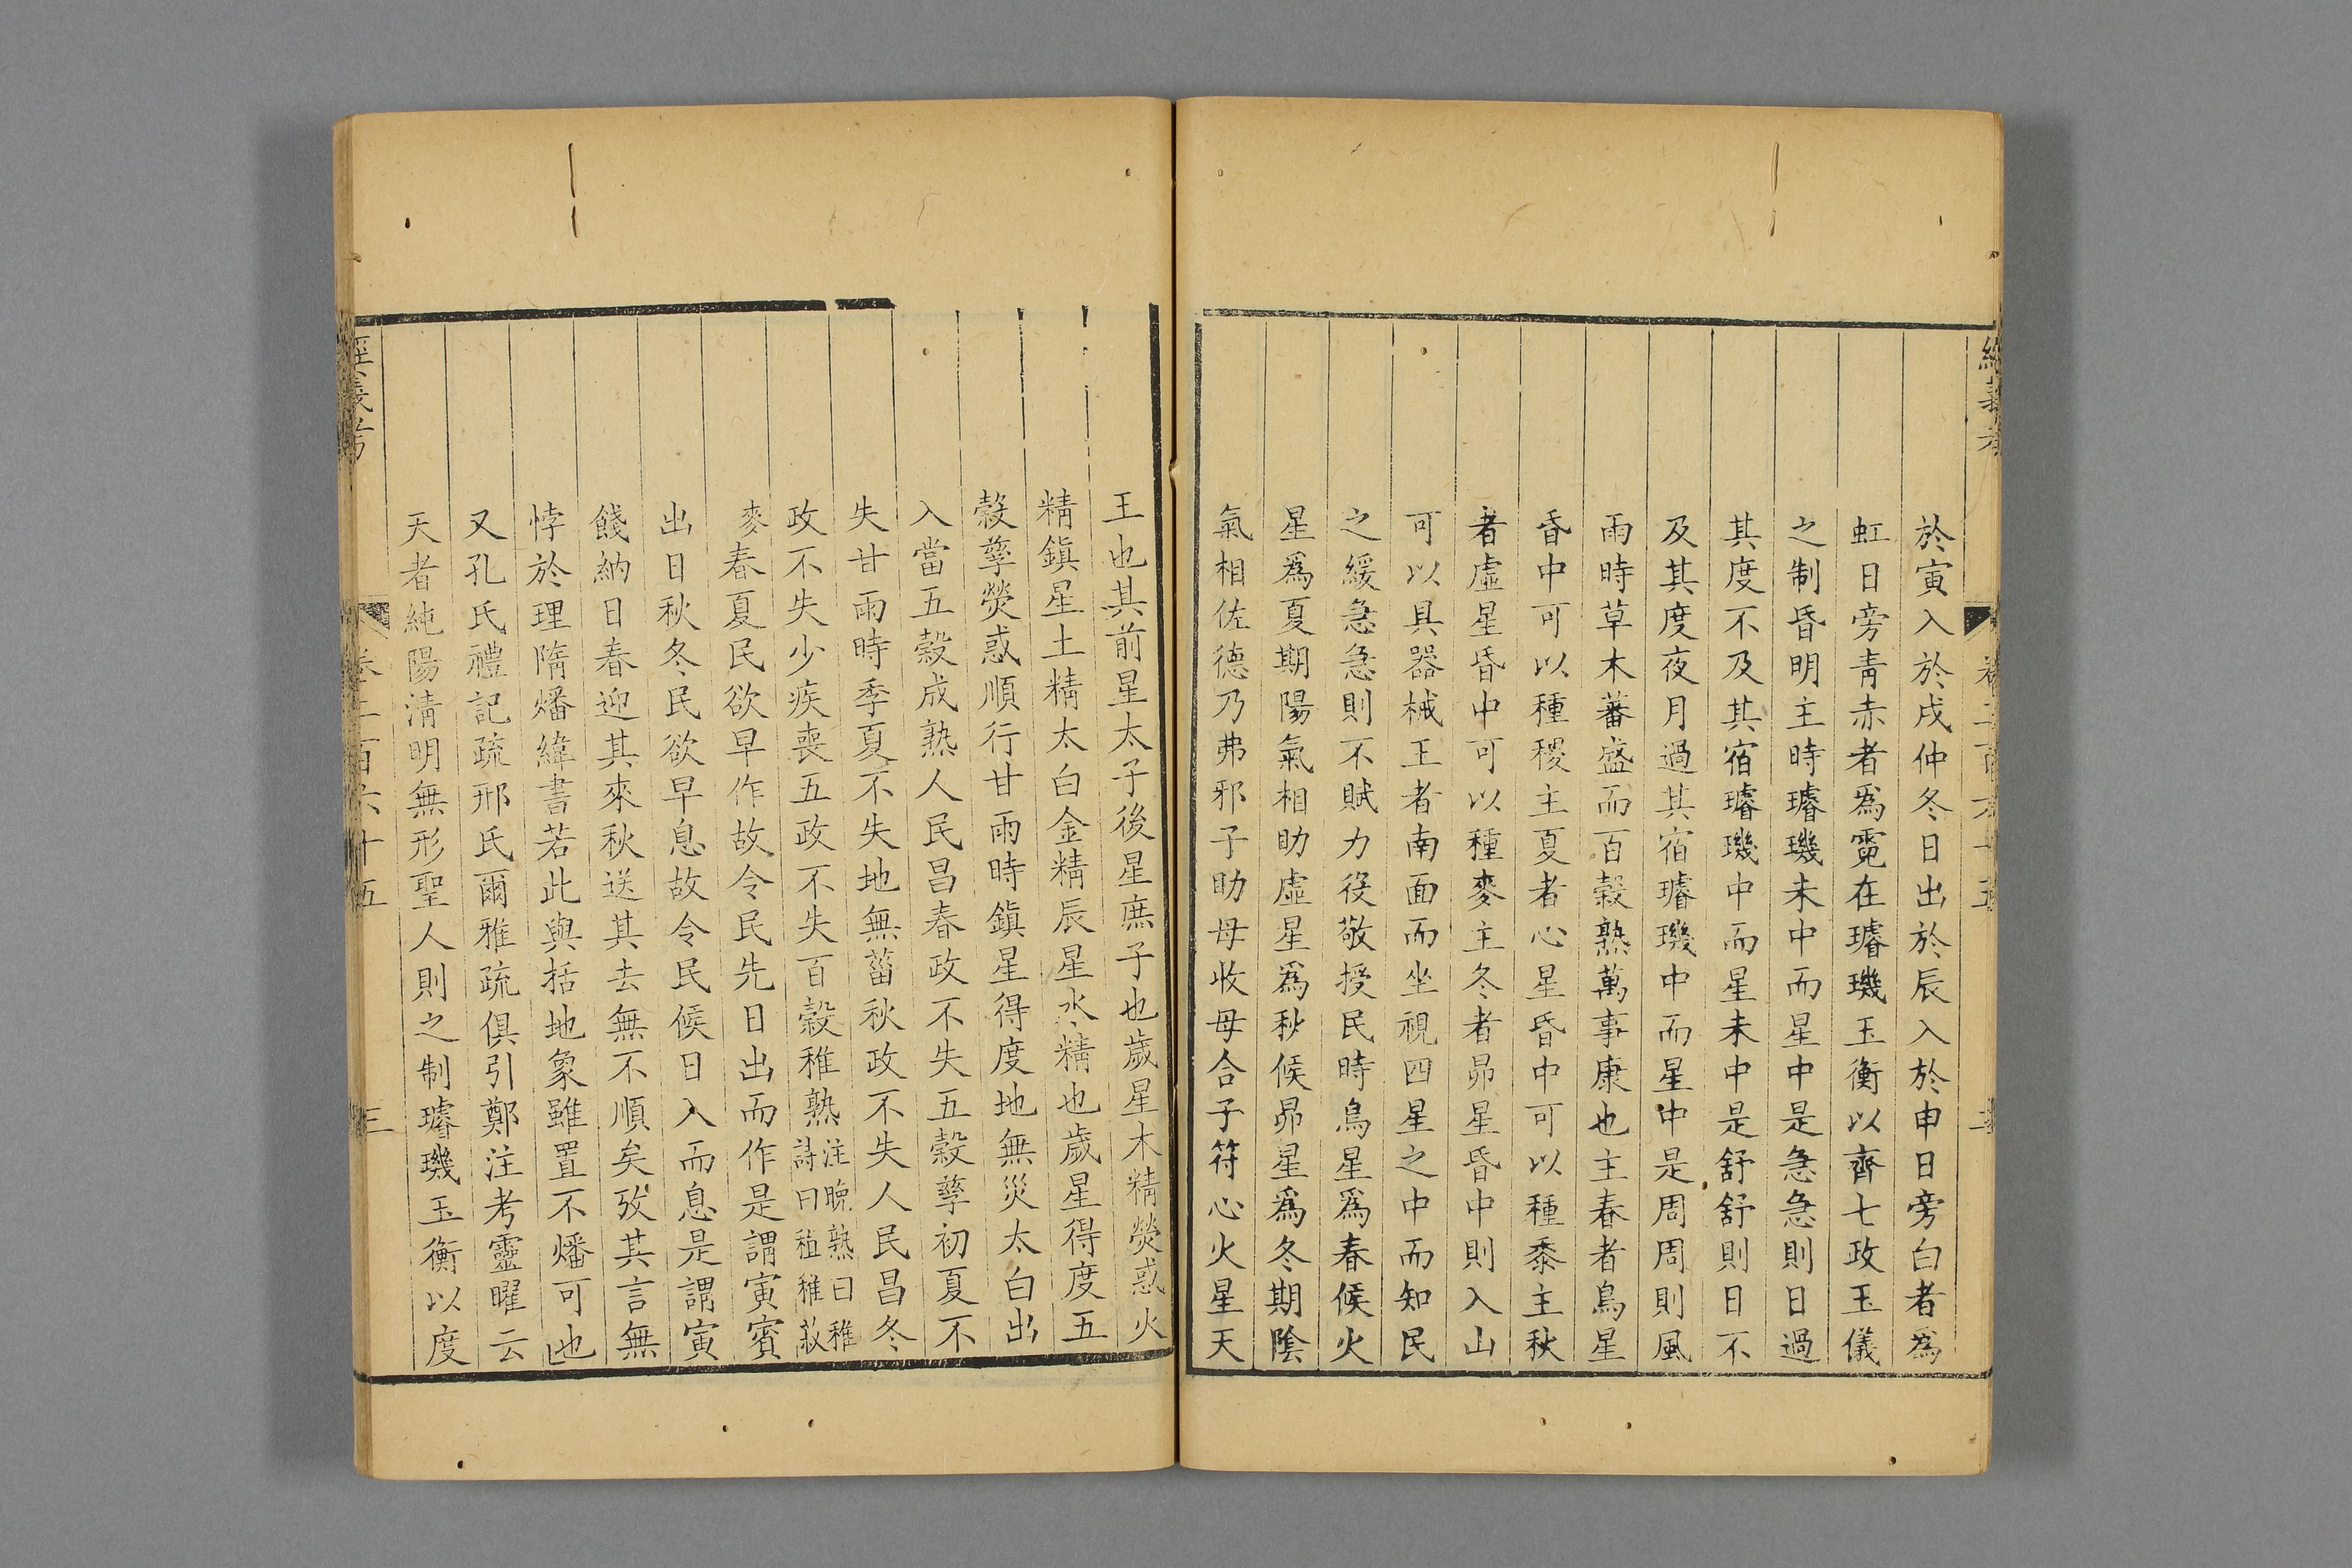 於寅入於戌仲冬日出於辰入於申日旁白者爲
虹日旁靑赤者爲霓在璿璣玉衡以齊七政玉儀
之制昏明主時璿璣未中而星中是急急則日過
其度不及其宿璿璣中而星未中是舒舒則日不
及其度夜月過其宿璿璣中而星中是周周則風
雨時草木蕃盛而百穀熟萬事康也主春者鳥星
昏中可以種稷主夏者心星昏中可以種黍主秋
者虛星昏中可以種麥主冬者昴星昏中則入山
可以具器械王者南面而坐視四星之中而知民
之緩急急則不賦力役敬授民時鳥星爲春候火
星爲夏期陽氣相助虛星爲秋候昴星爲冬期陰
氣相佐德乃弗邪子助母收母合子符心火星天
王也其前星太子後星庶子也歲星木精熒惑火
精鎭星土精太白金精辰星水精也歲星得度五
穀孳熒惑順行甘雨時鎭星得度地無災太白出
入當五穀成熟人民昌春政不失五穀孳初夏不
失甘雨時季夏不失地無菑秋政不失人民昌冬
政不失少疾喪五政不失百穀稚熟注晚熟曰稚
詩曰稙稚菽
麥春夏民欲早作故令民先日出而作是謂寅賓
出日秋冬民欲早息故令民候日入而息是謂寅
餞納日春迎其來秋送其去無不順矣攷其言無
悖於理隋燔緯書若此與括地象雖置不燔可也
又孔氏禮記疏邢氏爾雅疏俱引鄭注考靈曜云
天者純陽淸明無形聖人則之制璿璣玉衡以度
經義考
卷二百六十五
三